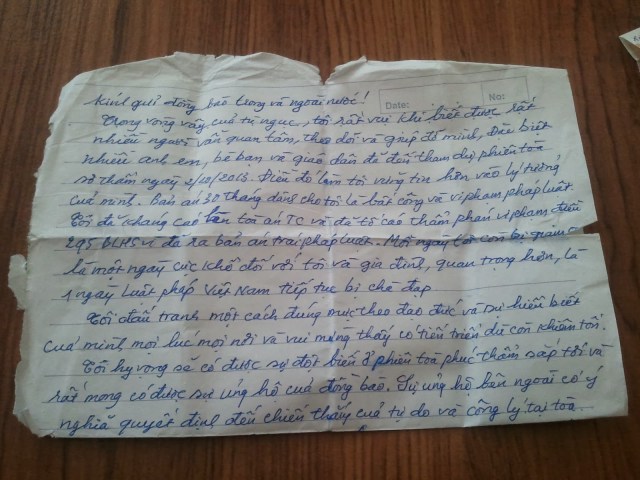 Kính gửi đồng bào trong và ngoài nước!
Date: No:
Trong vòng vây của tù ngục, tôi rất vui khi biết được rất
nhiều người vẫn quan tâm, theo dõi và giúp đỡ mình, đặc biệt
nhiều anh em, bè bạn và giáo dân đã đến tham dự phiên toà
sơ thẩm ngày 2/10/2013. Điều đó làm tôi vững tin hơn vào lý tưởng
của mình. bản án 30 tháng dành cho tôi là bất công và vi phạm pháp luật.
Tôi đã kháng cáo lên toà án TC và đã tố cáo thẩm phán vi phạm điều
295 BLHS vì đã ra bản án trái pháp luật. Mỗi ngày tôi còn bị giam
là một ngày cực khổ đối với tôi và gia đình, quan trọng hơn, là
1 ngày luật pháp Việt Nam tiếp tục bị chà đạp
Tôi đấu tranh một cách đúng mực theo đạo đức và sự hiểu biết
của mình mọi lúc mọi nơi và vui mừng thấy có tiến triển dù còn khiêm tốn.
Tôi hy vọng sẽ có được sự đột biến ở phiên toà phúc thẩm sắp tới và
rất mong có được sự ủng hộ của đồng bào. Sự ủng hộ bên ngoài có ý
nghĩa quyết định đến chiến thắng của tự do và công lý tại toà.